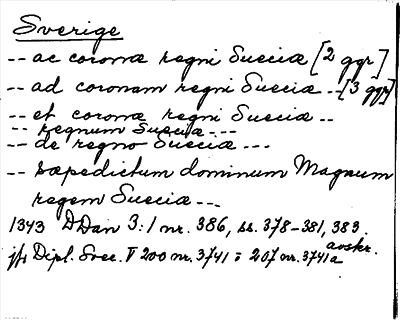 Sverige
-- ac coronæ regni Sueciæ [2 ggr]
-- ad coronam regni Sueciæ -- [3 ggr]
-- et coronæ regni Sueciæ --
-- regnum Sueciæ ---
-- de regno Sueciæ ---
-- sæpedictum dominum Magnum
regem Sueciæ ---
1343 DDan 3:1 nr. 386, ss. 378-381, 383.
jfr Dipl. Svec. V 200 nr. 3741 = 207 nr. 3741a
avskr.